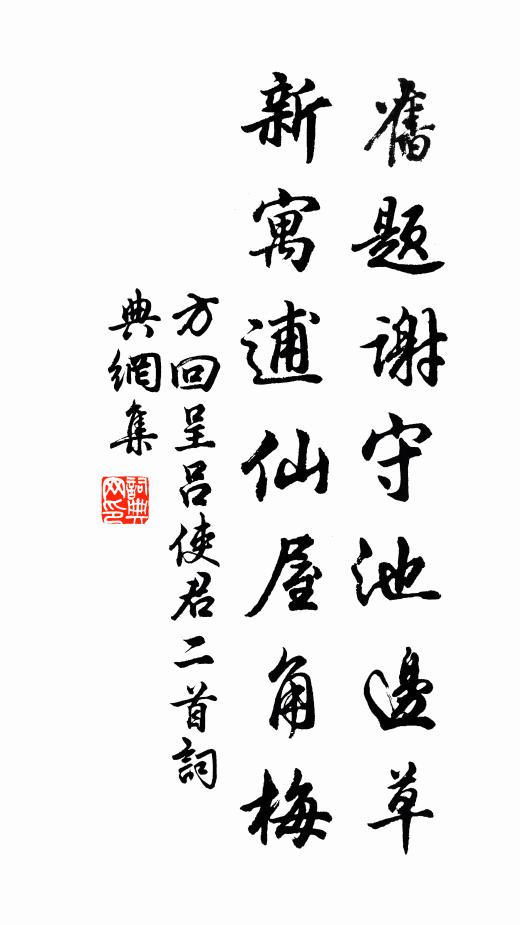 舊題謝守池邊草
新寓逋仙屋角梅
方回呈呂使君二首詞
典網集
詞典網印